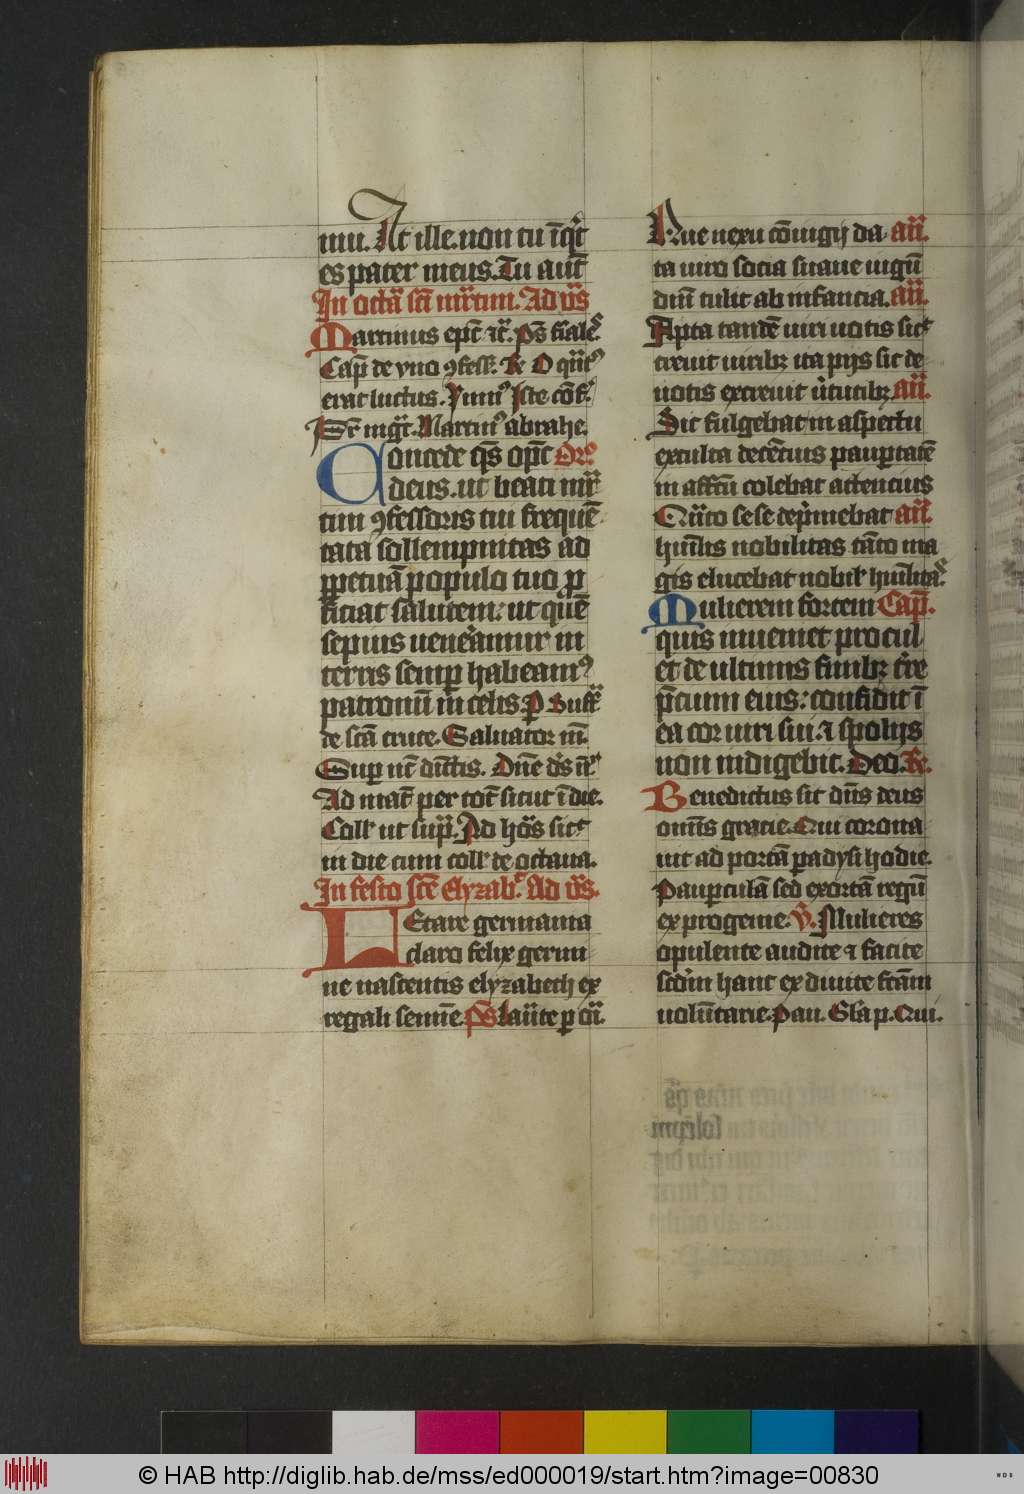 At ille. non tu īqͥt
es pater meus. Tu aut̄
In octa᷑ sc̄i mr̄tini. Ad v̄s
Martinus ep̄c
Cap̄ de vno ꝯfess̄. R̄ O
erat luctus. Iste
Martin⁹ abrahe.
Concede q̄s op̄c Oro
deus. ut beati mr̄
tini ꝯfessoris tui frequē
tata sollempnitas ad
ꝑpetuā populo tuo ꝓ
ficiat salutem: ut quē
sepius uen̄amur in
terris semꝑ habeam⁹
patronū in celis. P Suff̄
de scā cruce. Saluator m̄.
Suꝑ Dn̄e
Ad mat̄ per tot̄ sicut ī die.
Coll' ut sup̄. Ad ho᷑s sic᷑
in die cum coll' de octaua.
In festo sc̄e Elyzab᷑. Ad v̄s.
LEtare germania
claro felix germi
ne nascentis elyzabeth ex
regali semīe. p̄s lau᷑te ꝑ
Hue nexu cōiugij da an̄.
ta uiro socia suaue iugū
diu᷑ tulit ab infancia. an̄.
Apta tandē uiri uotis sic᷑
creuit uiribꝫ ita pijs sic de
uotis excreuit v̾tutibꝫ. an̄.
Sic fulgebat in aspectu
exculta decēcius pauꝑtatē
in affc̄u colebat attencius
Qn̄to sese dep̾mebat an̄.
hum̄lis nobilitas tāto ma
gis elucebat
Mulierem fortem Cap̄.
quis inueniet procul
et de ultimis finibꝫ t̾re
p̄cium eius: confidit ī
ea cor uiri sui. ⁊ spolijs
non indigebit. Deo. R̄.
Benedictus sit dn̄s deus
om̄is gracie. Qui corona
uit ad portā ꝑadysi hodie.
Pauꝑculā sed exortā regū
ex progenie. V̄. Mulieres
opulente audite ⁊ facite
scd̾m hanc ex diuite fc̄am
uolūtarie. pau. Gl'a p. Qui.
© HAB http://diglib.hab.de/mss/ed000019/start.htm?image=00830